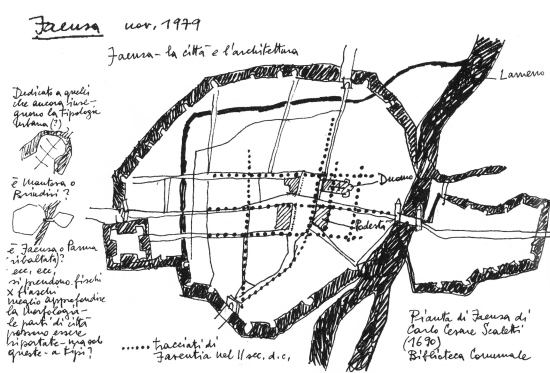 Faenza nov. 1979
Faenza - la città e l'architettura
Lamone
Dedicato a quelli
che ancora inse-
guono la tipologia
urbana (?)
è Mantova o
Brindisi?
è Faenza o Parma
ribaltata?
ecc. ecc.
si prendono fischi
x fiaschi
meglio approfondire
la morfologia -
le parti di città
possono essere
riportate -
queste - a tipi?
Duomo
Podestà
...... tracciati di
Faventia nel II sec. d.c.
Pianta di Faenza di
Carlo Cesare Scaletti
(1690)
Biblioteca Comunale